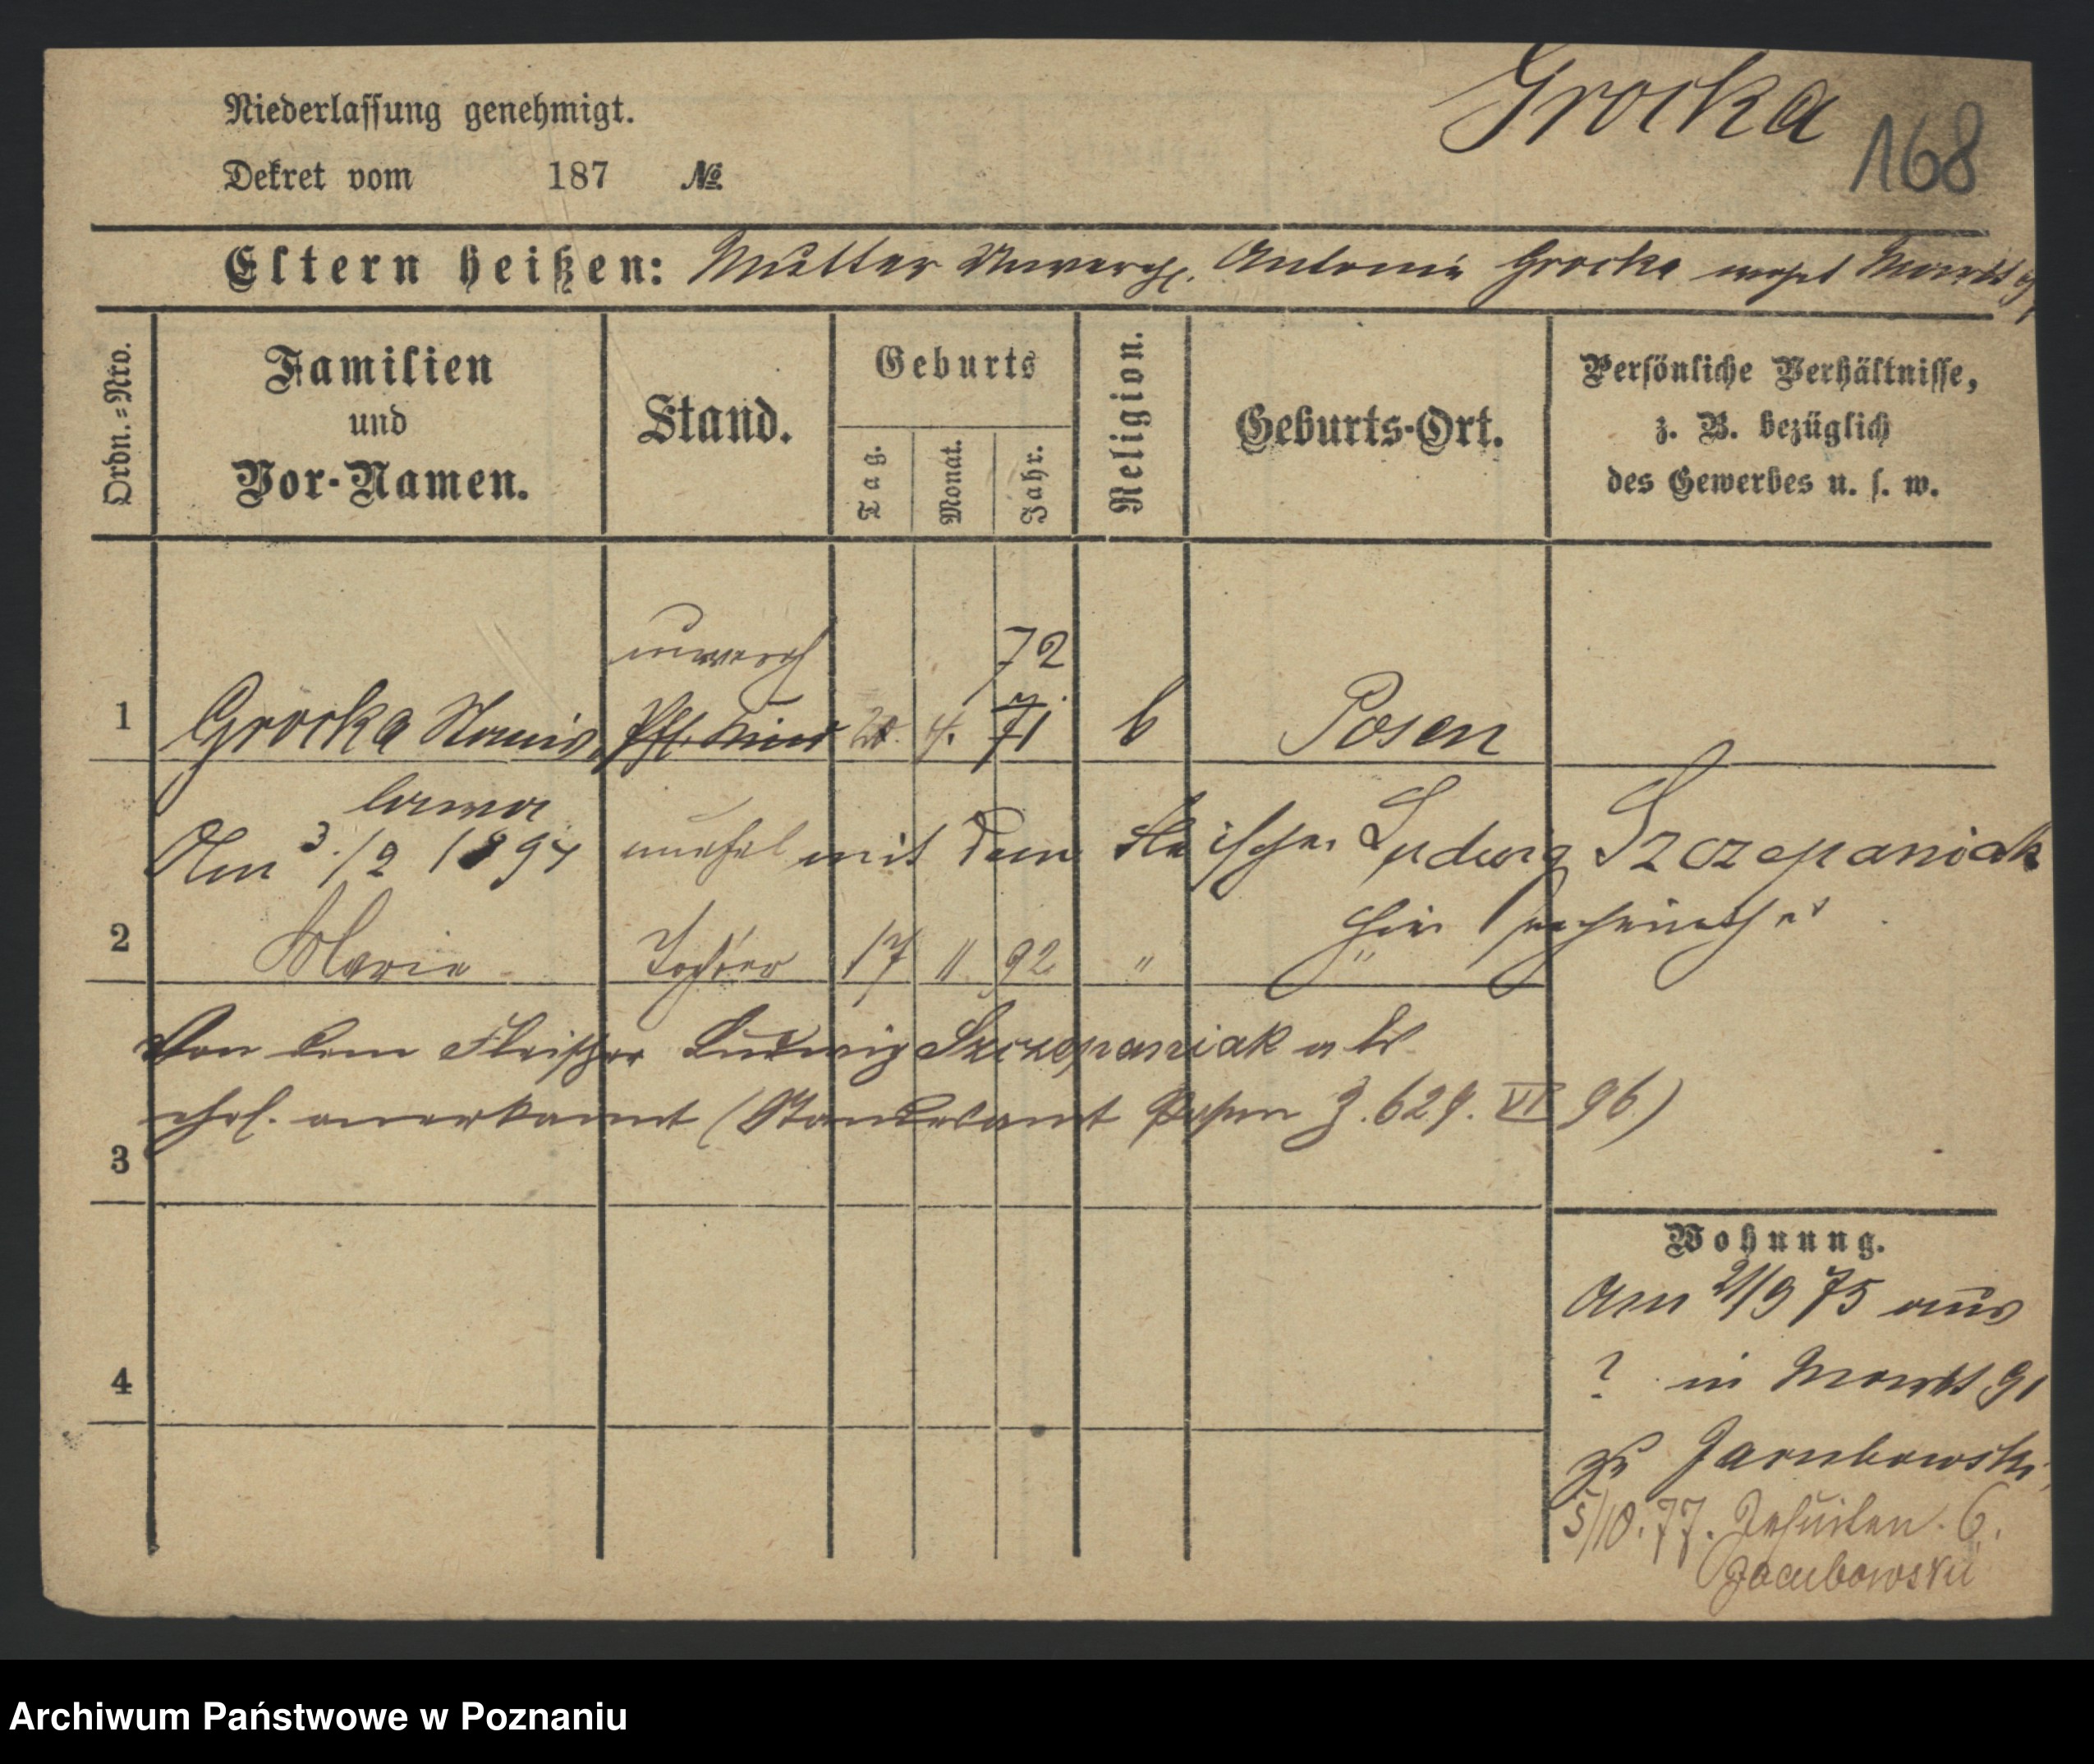 Grocka
168
Niederlassung genehmigt.
Dekret vom 187 №
Eltern heißen: Mutter Unverehl. Antonie Grocka wohnt Markt 91
Ordn.=Nro.
Familien
und
Vor-Namen.
Stand.
Geburts
Tag.
Monat.
Jahr.
Religion.
Geburts-Ort.
Persönliche Verhältnisse,
z. B. bezüglich
des Gewerbes u. s. w.
unverehl
72
1 Grocka Stanis Pfl. Kind 20. 4. 71 k Posen
lawa
Am 3./2 1897 mit dem Fleischer Ludwig Szczepaniak
hier verheirathet
2 Marie Tochter 17 11 92 " "
Von dem Fleischer Ludwig Szczepaniak als
ehel. anerkannt (Standesamt Posen J. 629. VI 96)
3
4
Wohnung.
Am 21/9 75 aus
? in Markt 91
zu Jacubowski
5/10. 77. Jesuiten. 6.
Jacubowski
Archiwum Państwowe w Poznaniu